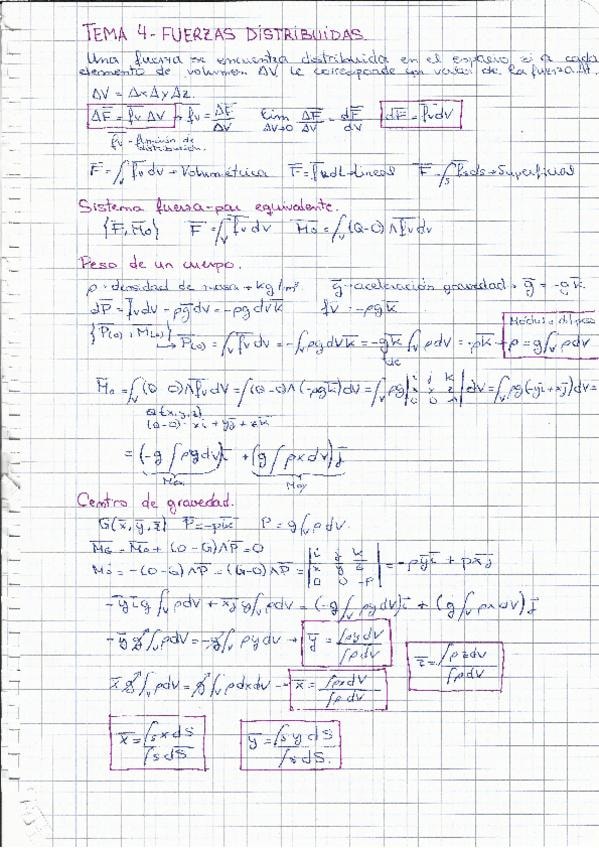 TEMA 4- FUERZAS DISTRIBUIDAS
Una fuerza se encuentra distribuida en el espacio si a cada
elemento de volumen ΔV le corresponde un valor de la fuerza
ΔV = Δx Δy Δz
ΔF̄ = f̄v ΔV → f̄v = ΔF̄/ΔV lim ΔV→0 ΔF̄/ΔV = dF̄/dV dF̄ = f̄v dV
f̄v - función de
distribución
F̄ = ∫v f̄v dv → Volumétrica F̄ = ∫ dL → Lineal F̄ = ∫s f̄s ds → Superficial
Sistema fuerza-par equivalente.
{F̄, M̄o} F̄ = ∫v f̄v dv M̄o = ∫v (Q-O) ∧ f̄v dv
Peso de un cuerpo.
ρ - densidad de masa → kg/m³ ḡ - aceleración gravedad → ḡ = -g k̄
dP̄ = f̄v dv = ρḡ dv = -ρg dv k̄ f̄v = -ρg k̄
{P̄(o), M̄(o)}
P̄(o) = ∫v f̄v dv = -∫v ρg dv k̄ = -g k̄ ∫v ρ dv = -p k̄ → p = g ∫v ρ dv
M̄o = ∫v (Q-O) ∧ f̄v dv = ∫v (Q-O) ∧ (-ρg k̄) dv = ∫v ρg |i j k; x y z; 0 0 -1| dv = ∫v ρg (-y ī + x j̄) dv =
Q(x, y, z)
(Q-O) = x ī + y j̄ + z k̄
= (-g ∫ ρy dv) ī + (g ∫ ρx dv) j̄
Mox Moy
Centro de gravedad.
G(x̄, ȳ, z̄) P̄ = -p k̄ P = g ∫v ρ dv.
M̄G = M̄o + (O-G) ∧ P̄ = 0
M̄o = -(O-G) ∧ P̄ = (G-O) ∧ P̄ = |i j k; x̄ ȳ z̄; 0 0 -p| = -pȳ ī + p x̄ j̄
-ȳ ī g ∫v ρ dv + x̄ j̄ g ∫v ρ dv = (-g ∫v ρy dv) ī + (g ∫v ρx dv) j̄
-ȳ g ∫v ρ dv = -g ∫v ρy dv → ȳ = ∫ρy dv / ∫ρ dv z̄ = ∫ρz dv / ∫ρ dv
x̄ g ∫v ρ dv = g ∫v ρx dv → x̄ = ∫ρx dv / ∫ρ dv
x̄ = ∫s x dS / ∫s dS ȳ = ∫s y dS / ∫s dS.